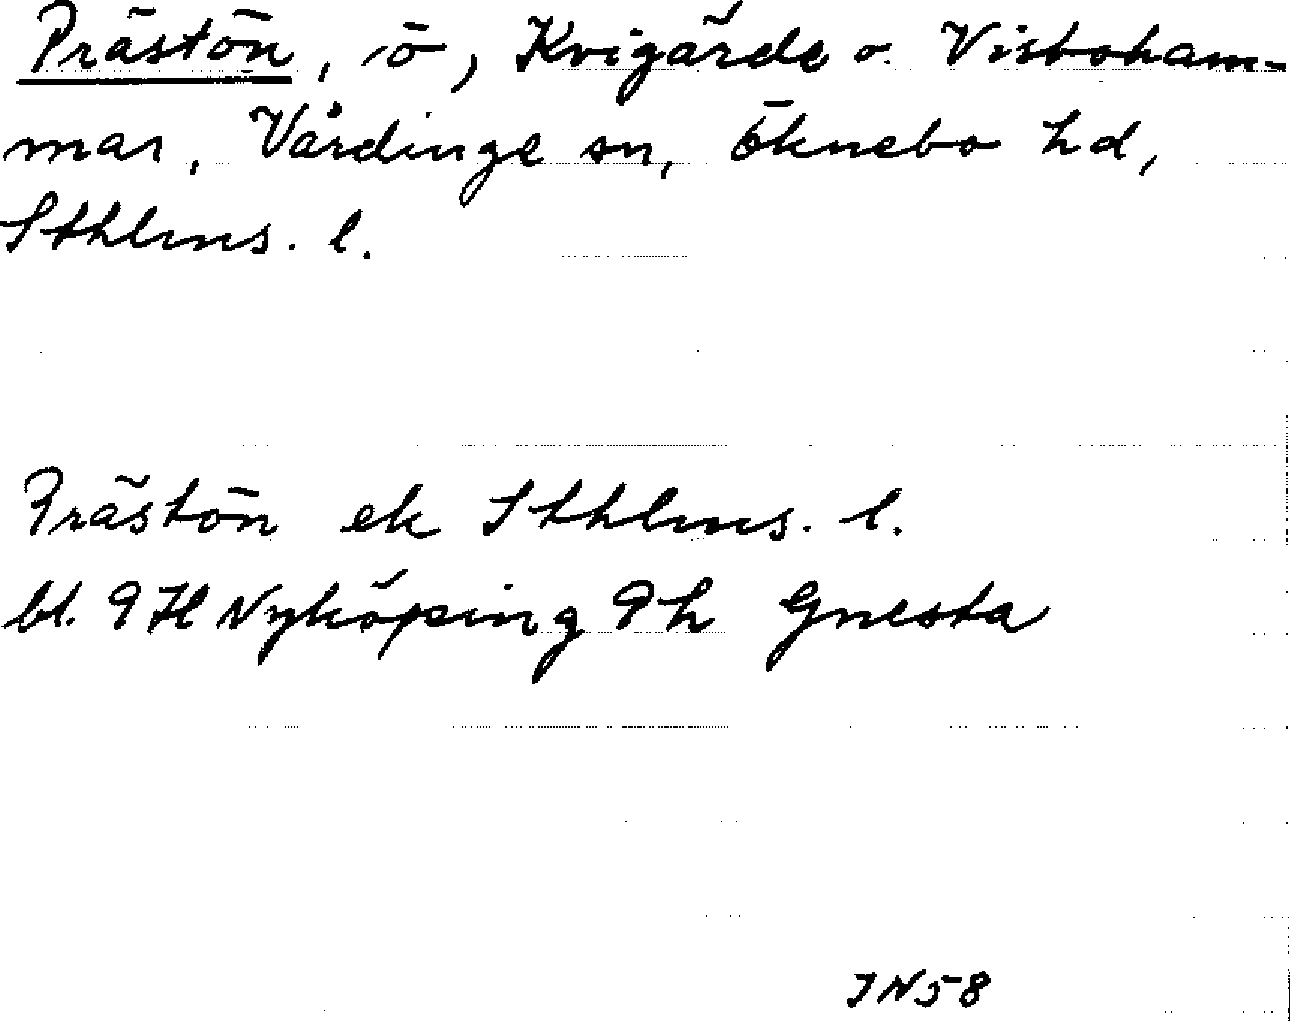 Prästön, ö, Kvigärde o. Visboham-
mar, Vårdinge sn, Öknebo hd,
Sthlms. l.
Prästön ek Sthlms. l.
bl. 9H Nyköping 9h Gnesta
IN58